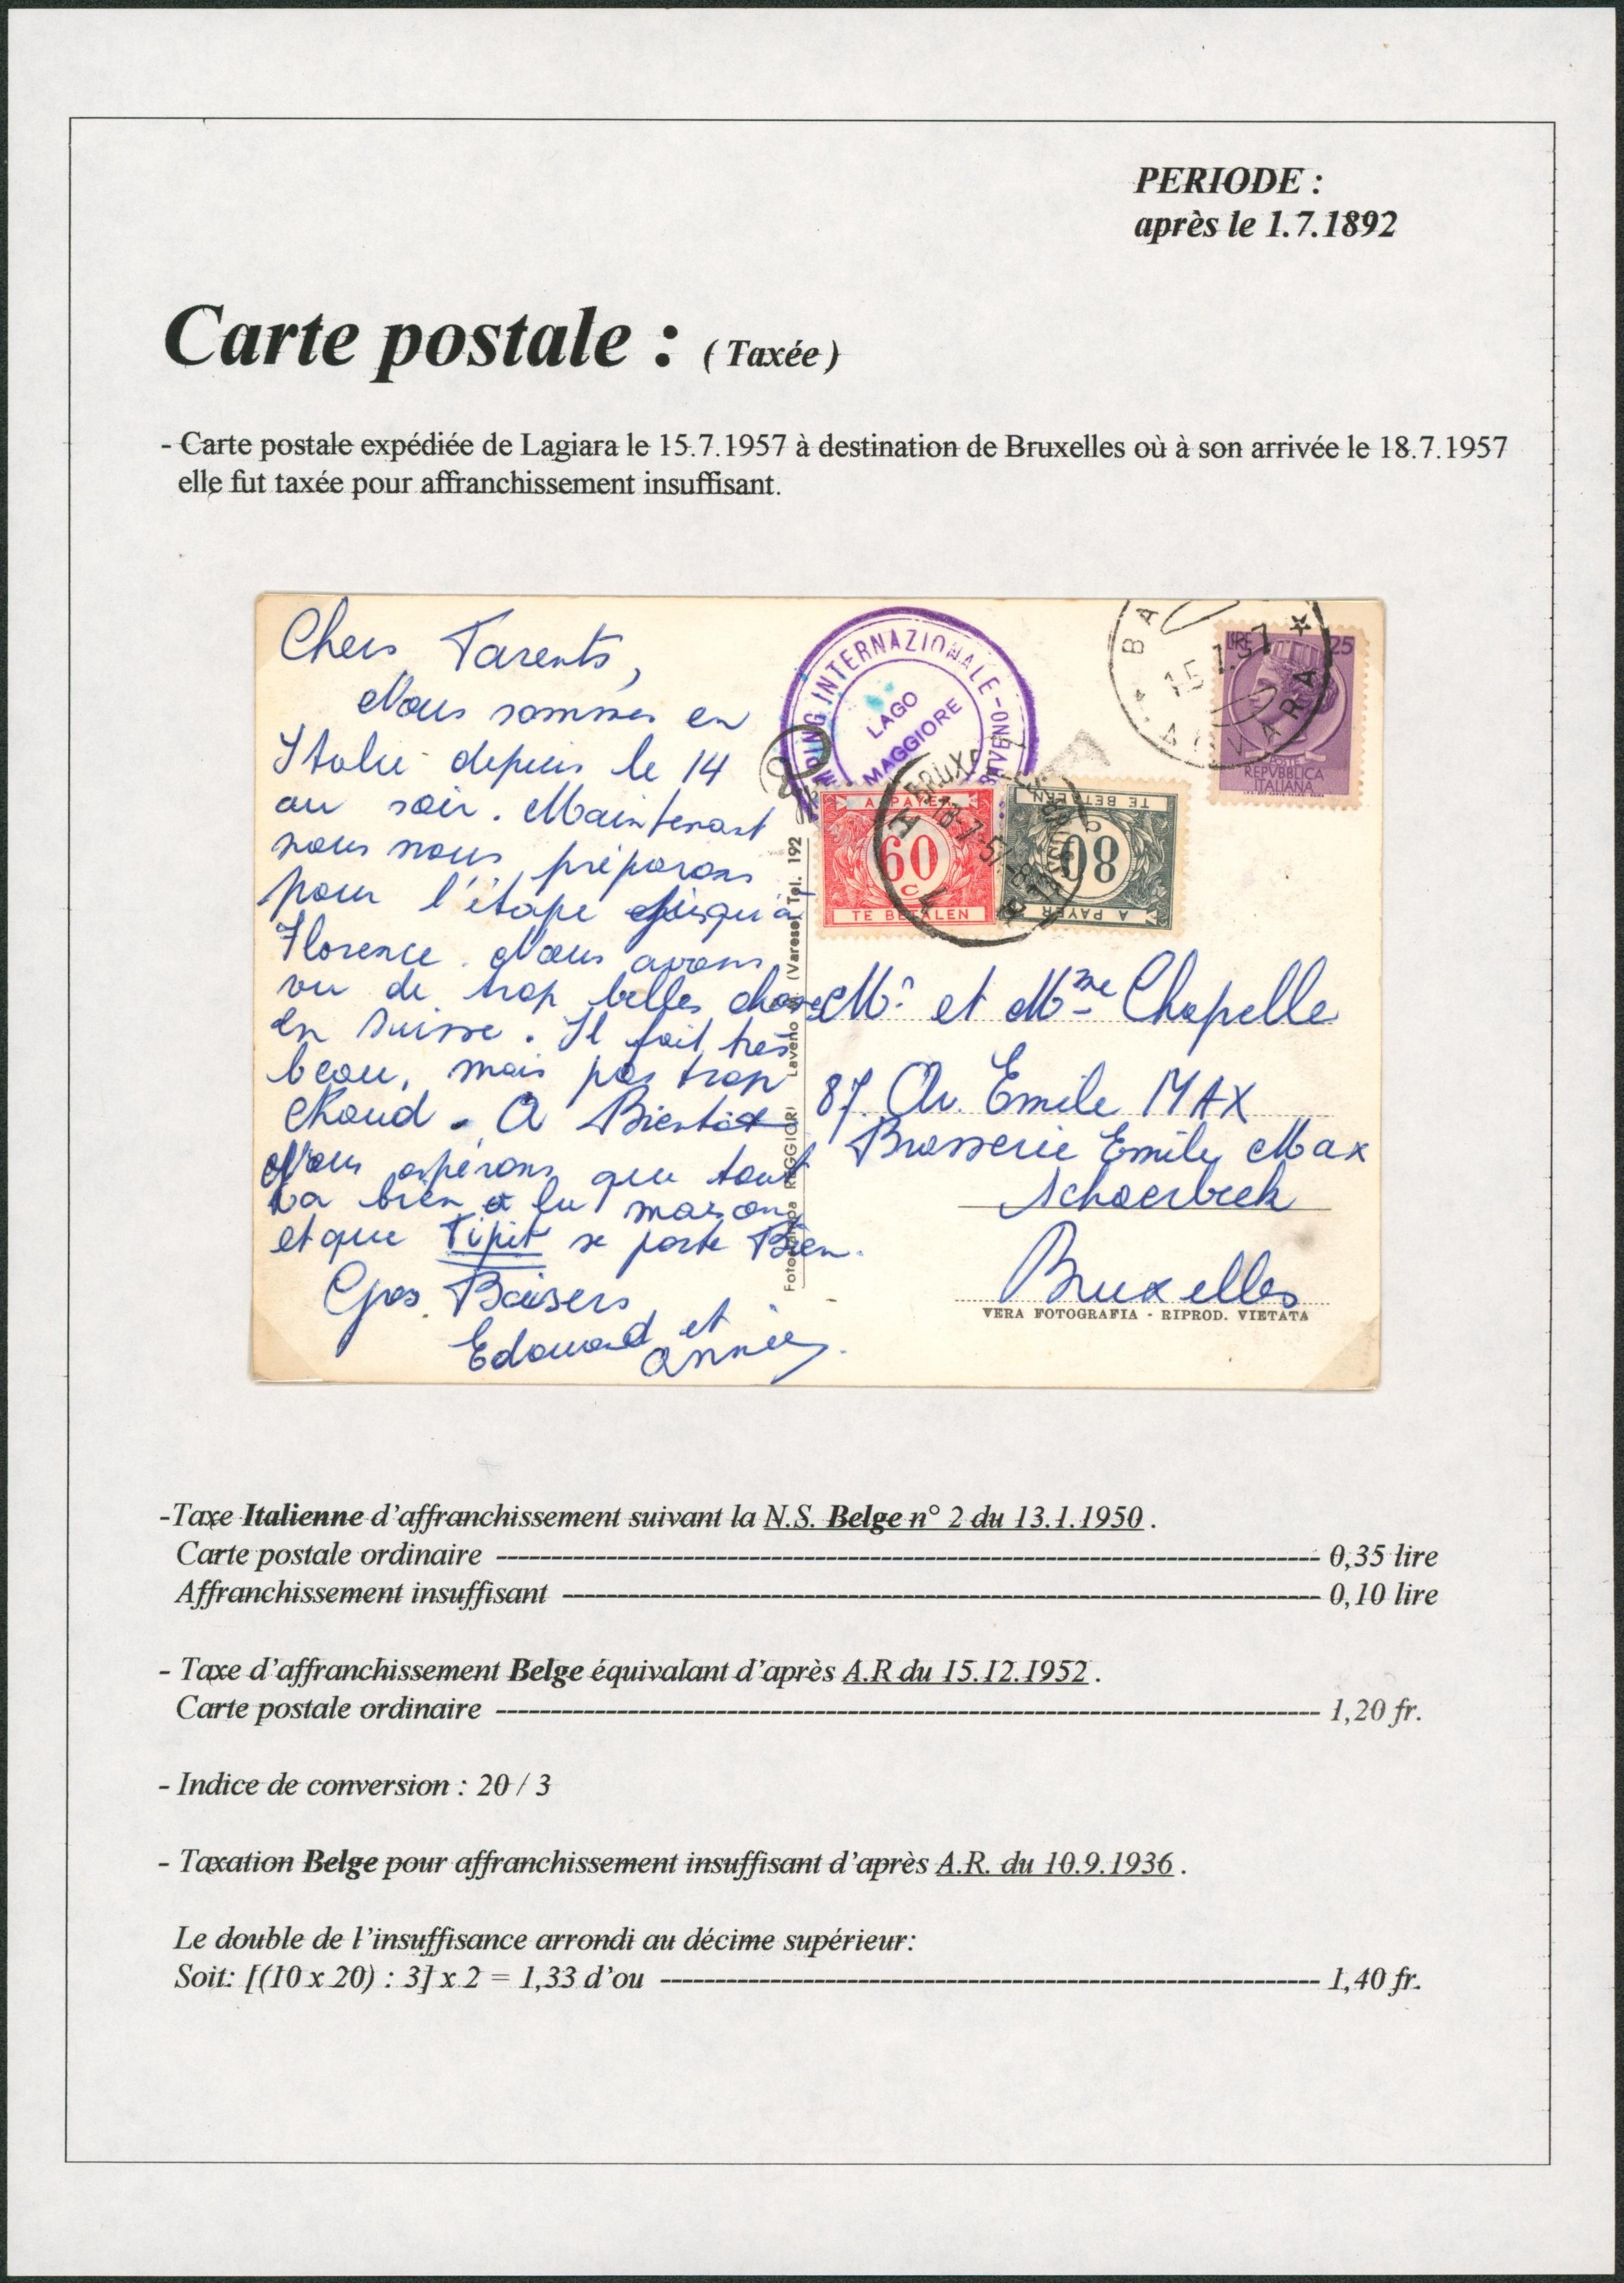 PERIODE :
après le 1.7.1892
Carte postale : ( Taxée )
- Carte postale expédiée de Lagiara le 15.7.1957 à destination de Bruxelles où à son arrivée le 18.7.1957
elle fut taxée pour affranchissement insuffisant.
Chers Parents,
Nous sommes en
Italie depuis le 14
au soir. Maintenant
nous nous préparons
pour l'étape jusqu'à
Florence. Nous avons
vu de trop belles choses
en Suisse. Il fait très
beau, mais pas trop
chaud. A Bientôt
Nous espérons que tout
va bien à la maison
et que Tipit se porte Bien.
Gros Baisers
Edouard et
Annie
CAMPING INTERNAZIONALE -
BAVENO
LAGO
MAGGIORE
BA
15.7.57
LIRE 25
POSTE
REPVBBLICA
ITALIANA
A PAYER
60
C
TE BETALEN
TE BETALEN
80
C
A PAYER
BRUXELLES
18-7-57
BRUSSEL
Fotostampa REGGIORI Laveno M. (Varese) Tel. 192
Mr et Mme Chapelle
87. Av. Emile MAX
Brasserie Emile Max
Schaerbeek
Bruxelles
VERA FOTOGRAFIA - RIPROD. VIETATA
-Taxe Italienne d'affranchissement suivant la N.S. Belge n° 2 du 13.1.1950 .
Carte postale ordinaire ---- 0,35 lire
Affranchissement insuffisant ---- 0,10 lire
- Taxe d'affranchissement Belge équivalant d'après A.R du 15.12.1952 .
Carte postale ordinaire ---- 1,20 fr.
- Indice de conversion : 20 / 3
- Taxation Belge pour affranchissement insuffisant d'après A.R. du 10.9.1936 .
Le double de l'insuffisance arrondi au décime supérieur:
Soit: [(10 x 20) : 3] x 2 = 1,33 d'ou ---- 1,40 fr.